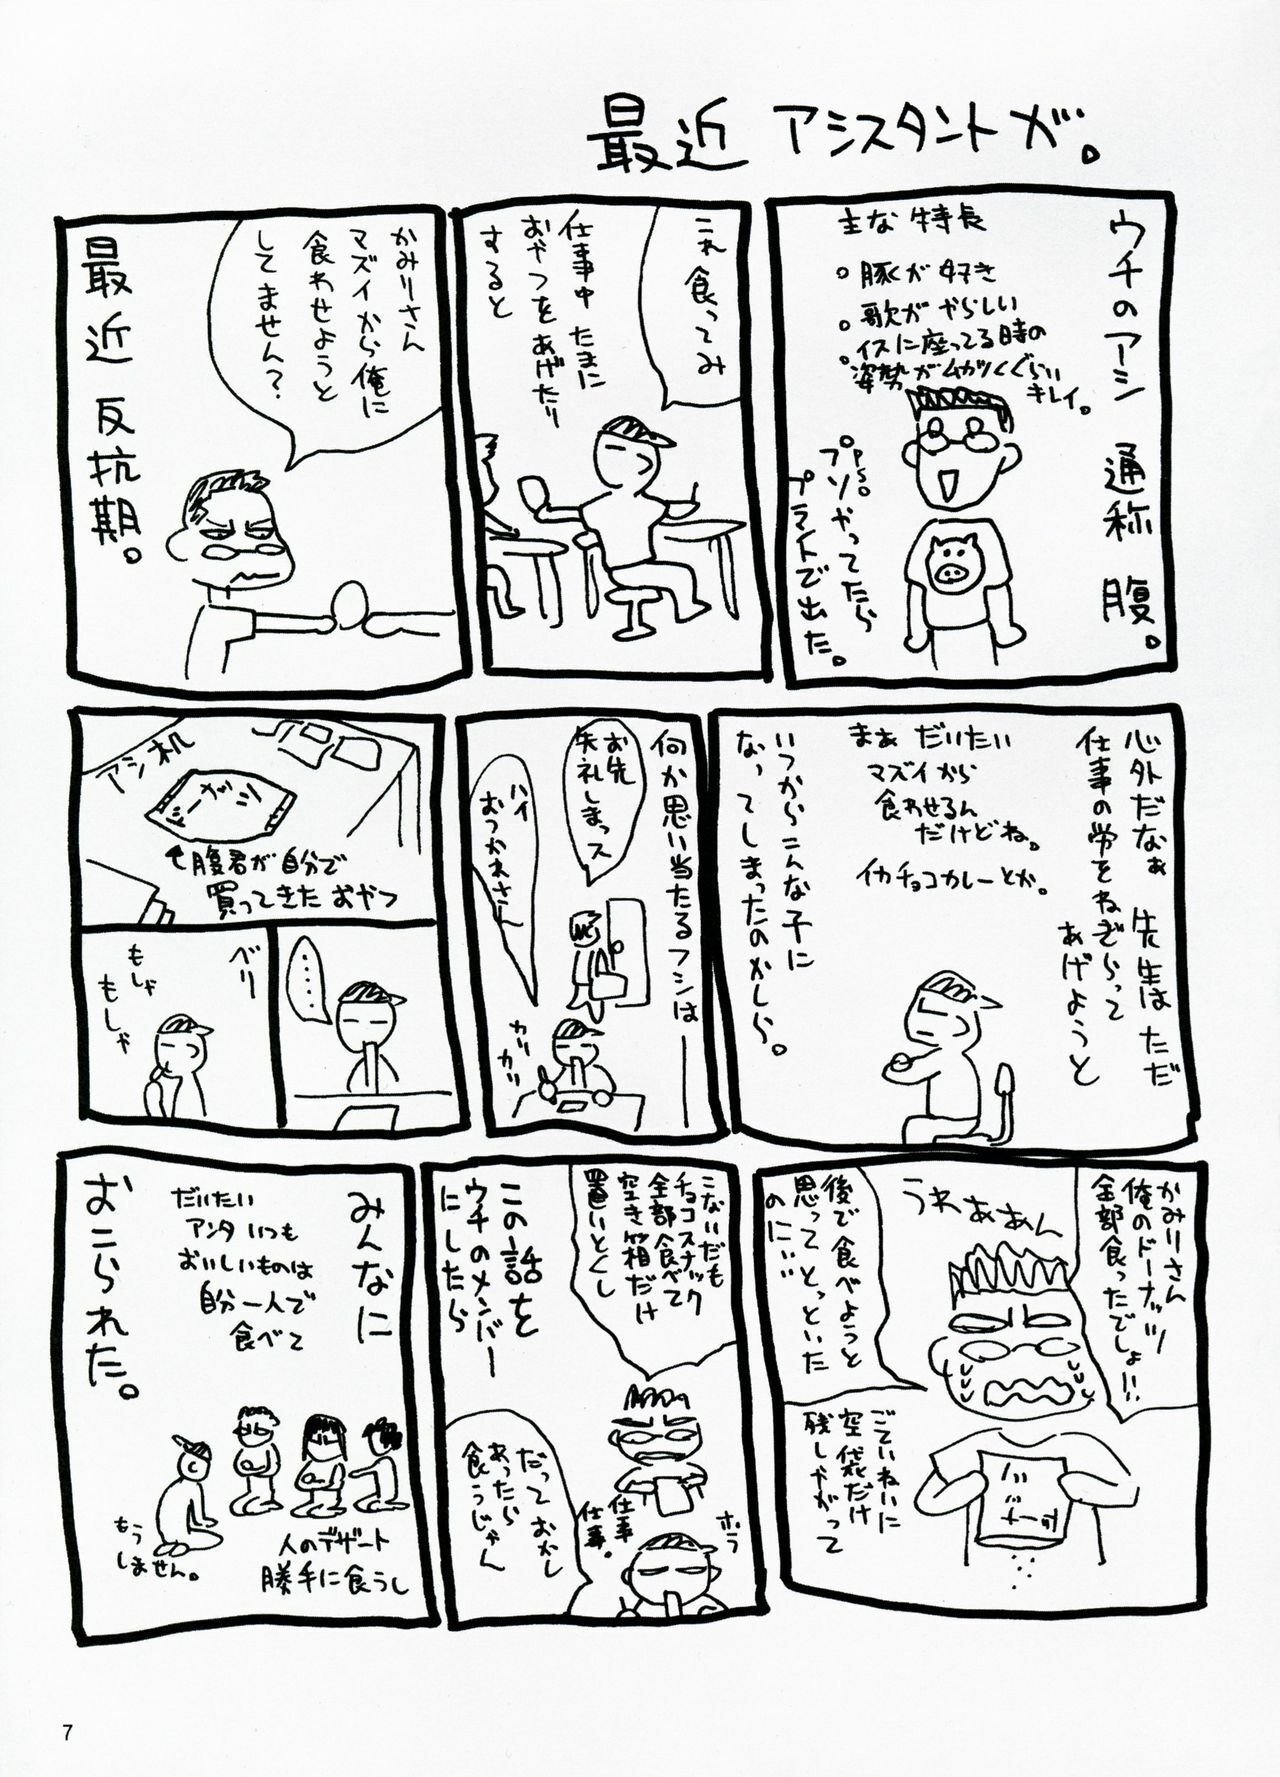 最近 アシスタントが。
ウチのアシ 通称 腹。
主な特長
。豚が好き
。歌がやらしい
。イスに座ってる時の
姿勢がムカツくぐらい
キレイ。
P.S.
プソやってたら
プライトで出た。
これ食ってみ
仕事中 たまに
おやつをあげたり
すると
かみりさん
マズイから俺に
食わせようと
してません?
最近 反抗期。
心外だなぁ 先生はただ
仕事の労をねぎらって
あげようと
まぁ だいたい
マズイから
食わせるん
だけどね。
イカチョコカレーとか。
いつからこんな子に
なってしまったのかしら。
何か思い当たるフシは――
お先
失礼しまっス
ハイ
おつかれさん
カリ
カリ
アシ机
↑腹君が自分で
買ってきたおやつ
……
ベリ
もしゃ
もしゃ
かみりさん
俺のドーナッツ
全部食ったでしょ!!
うわぁあぁん
後で食べようと
思ってとっといた
のに…
ごていねいに
空袋だけ
残しやがって
こないだも
チョコスナック
全部食べて
空き箱だけ
置いとくし
この話を
ウチのメンバー
にしたら
だっておかし
あったら
食うじゃん
ホラ
仕事
仕事。
みんなに
おこられた。
だいたい
アンタいつも
おいしいものは
自分一人で
食べて
人のデザート
勝手に食うし
もう
しません。
7